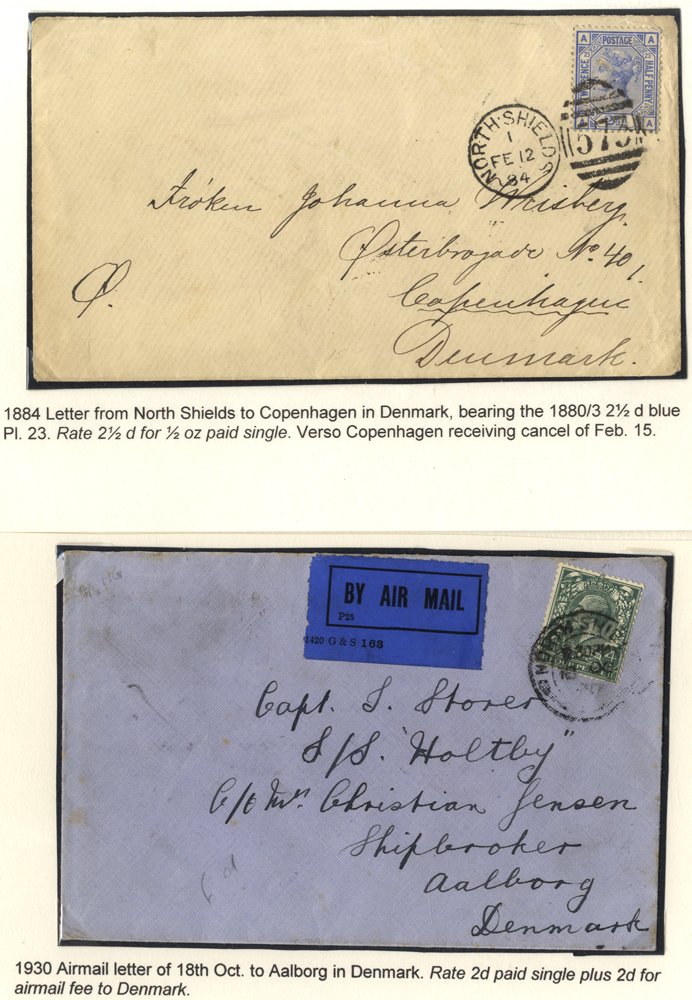 POSTAGE
A A
HALF PENNY
A A
NORTH·SHIELDS
1
FE 12
84
573
Frøken Johanna Wrisberg,
Østerbrogade No. 40,
Copenhagen
Denmark.
Ø.
1884 Letter from North Shields to Copenhagen in Denmark, bearing the 1880/3 2½ d blue
Pl. 23. Rate 2½ d for ½ oz paid single. Verso Copenhagen receiving cancel of Feb. 15.
BY AIR MAIL
P25
1420 G & S 168
NORTH SHI
Capt. S. Storer
S/S. "Holtby"
C/o Mr. Christian Jensen
Shipbroker
Aalborg
Denmark
1930 Airmail letter of 18th Oct. to Aalborg in Denmark. Rate 2d paid single plus 2d for
airmail fee to Denmark.